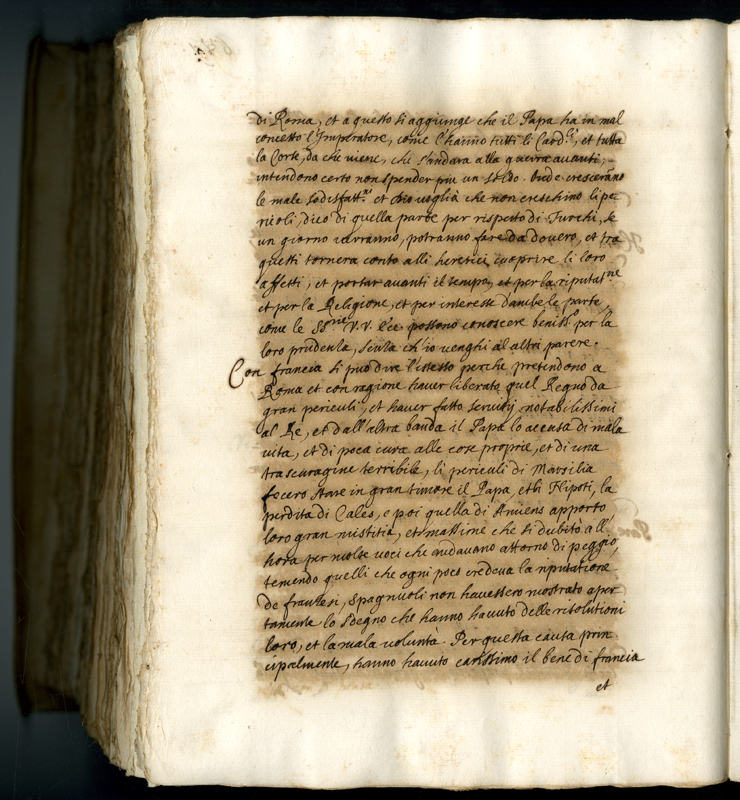 di Roma, et a questo si aggiunge che il Papa ha in mal
concetto l'Imperatore, come l'hanno tutti li Card.li, et tutta
la Corte, da che viene, che s'indara alla guerra auanti,
intendono certo non spender piu un soldo. onde cresceranno
le male sodisfatt.ni et Dio voglià che non creschino li pe=
ricoli, dico di quella parte per rispetto di Turchi, se
un giorno verranno, potranno fare da douero, et tra
questi tornera conto alli heretici cuoprire li loro
affetti, et portar auanti il tempo, et per la riputat.ne
et per la Religione, et per interesse d'ambe le parte,
come le SS.rie V.V. Ecc. possono conoscere beniss.o per la
loro prudenza, senza ch'io venghi al altri parere.
Con francia si può dire l'istesso perche pretendono a
Roma et con ragione hauer liberato quel Regno da
gran periculi, et hauer fatto seruitij notabilissimi
al Re, et dall'altra banda il Papa lo accusa di mala
vita, et di poca cura alle cose proprie, et di una
trascuragine terribile, li periculi di Marsilia
fecero stare in gran timore il Papa, et li Nipoti, la
perdita di Cales, e poi quella di Amiens apportò
loro gran mistitia, et massime che si dubitò all'
hora per molte voci che andauano attorno di peggio,
temendo quelli che ogni poco credeua la riputatione
de franzesi, Spagnuoli non hauessero mostrato aper=
tamente lo sdegno che hanno hauuto delle risolutioni
loro, et la mala voluntà. Per questa causa prin=
cipalmente, hanno hauuto carissimo il bene di francia
et